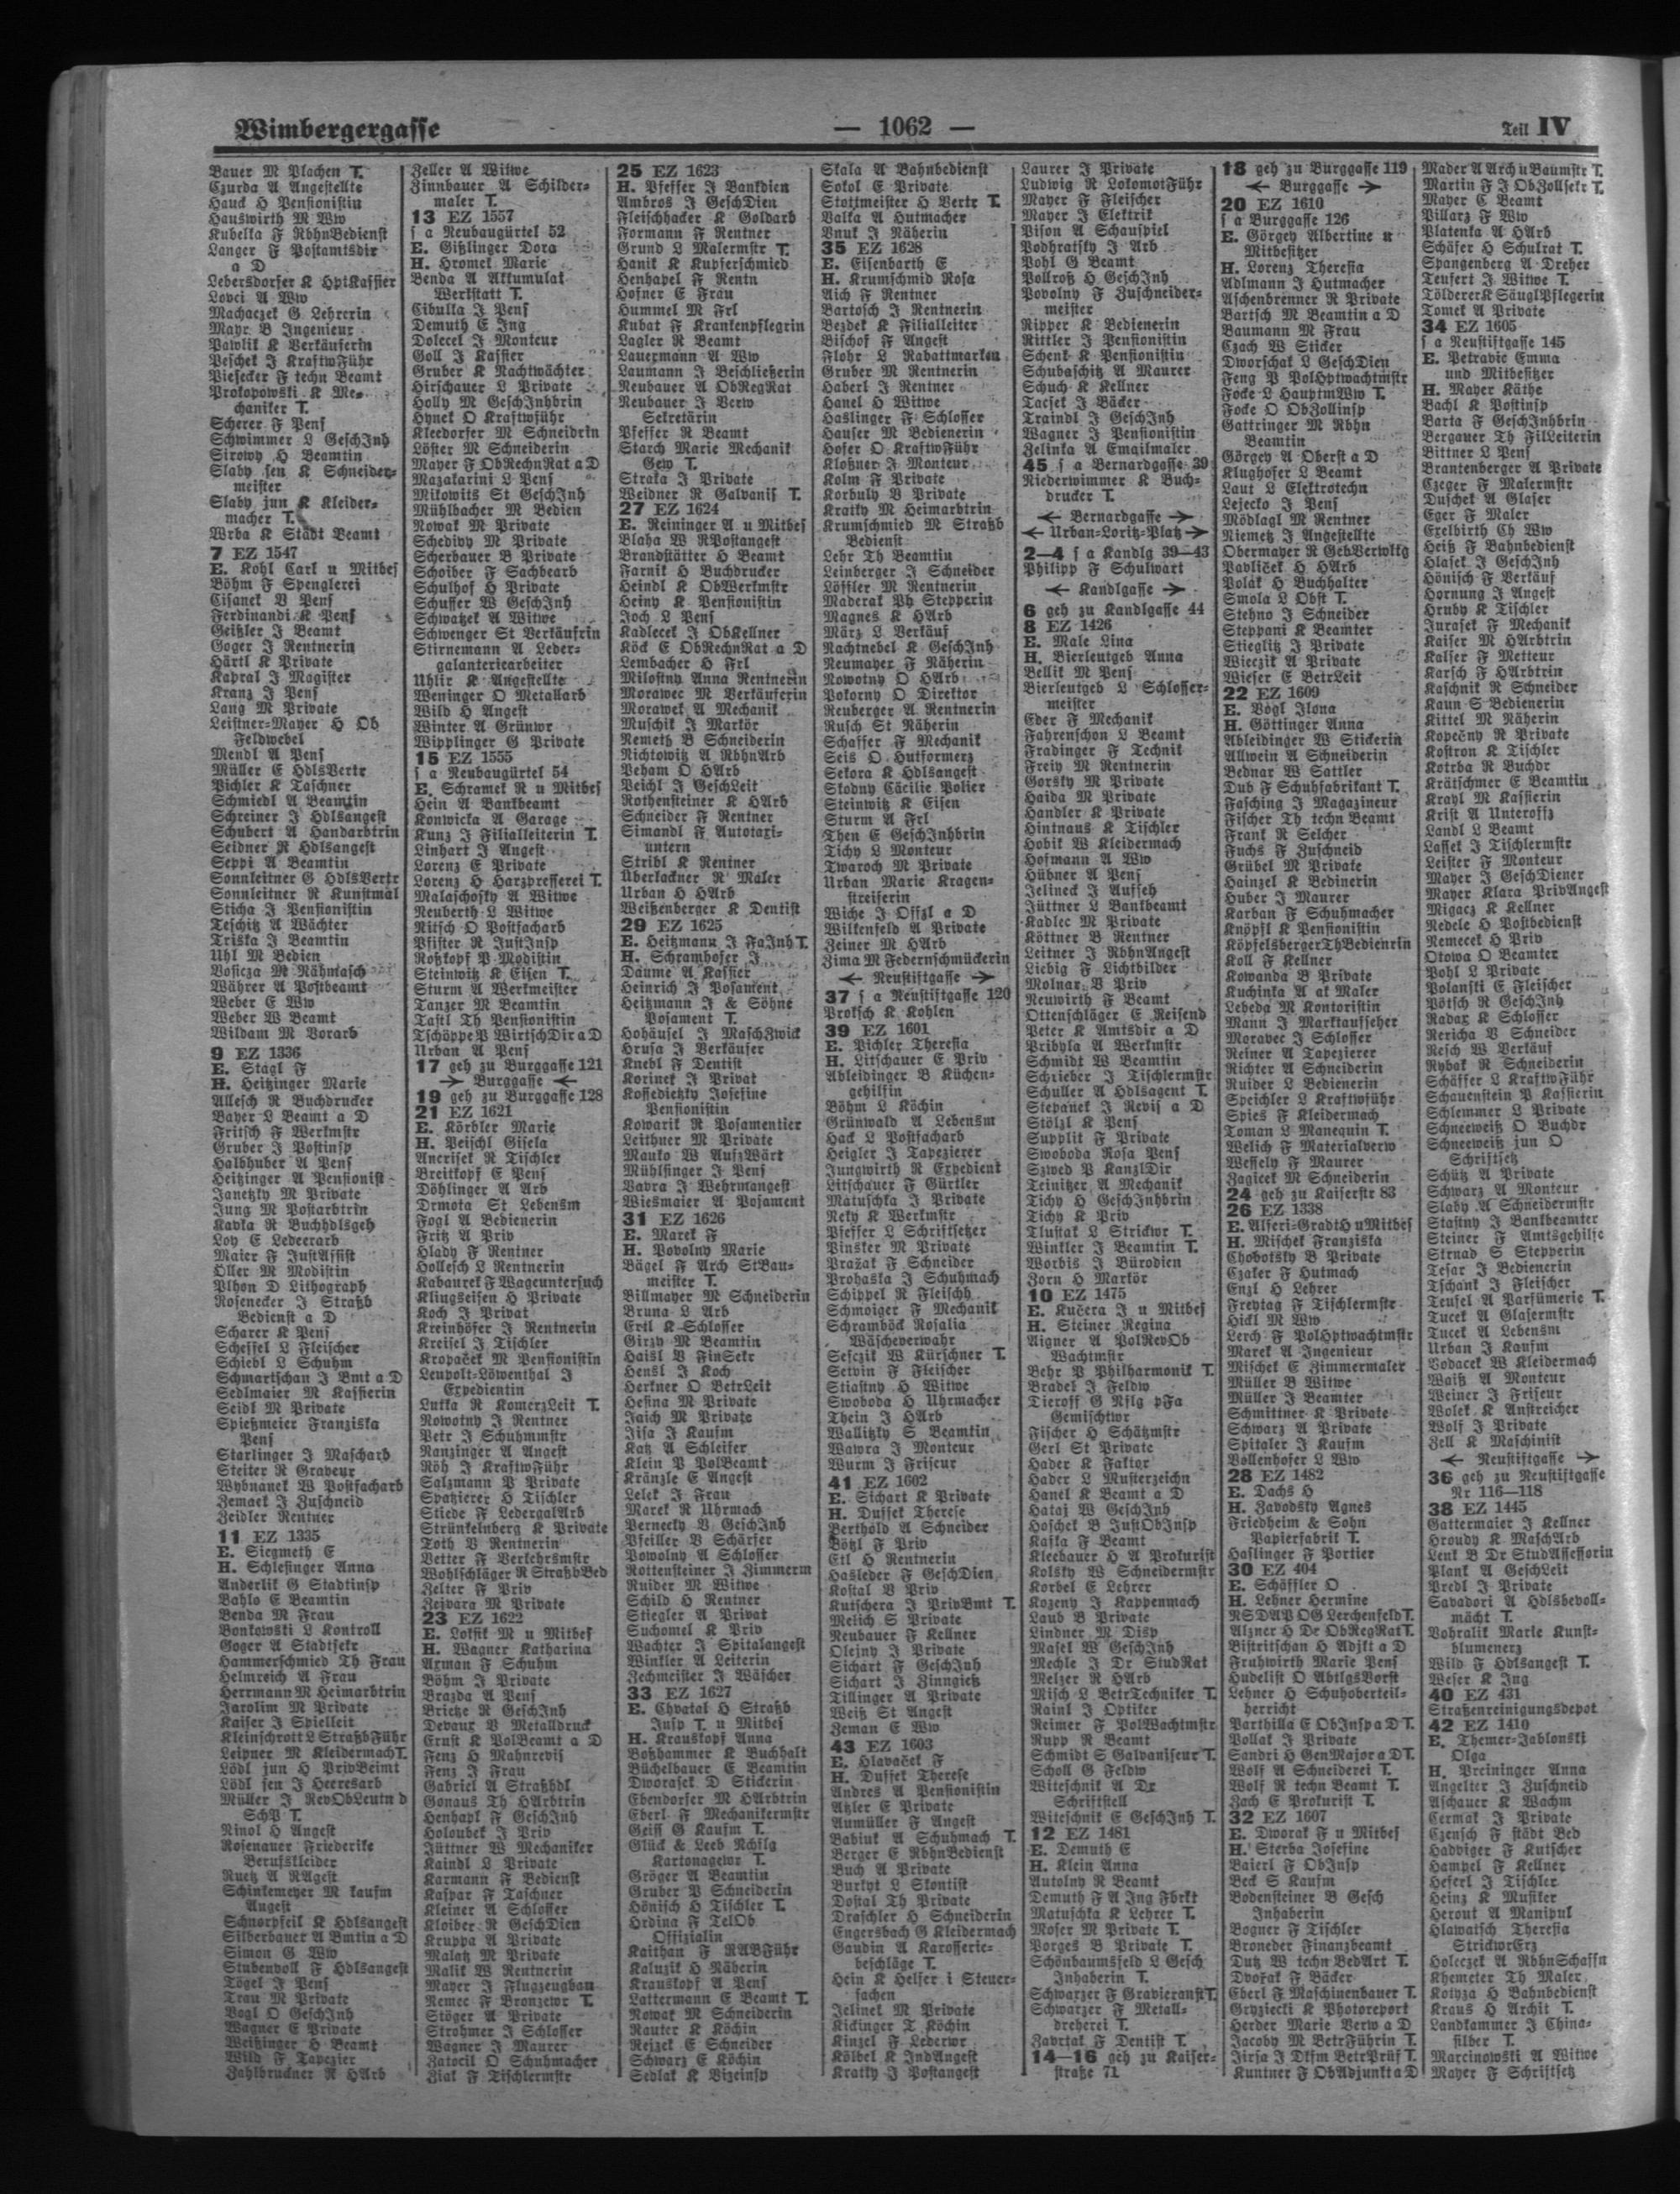 Wimbergergasse
— 1062 —
Teil IV
Bauer M Plachen T.
Czurda A Angestellte
Hauck H Pensionistin
Hauswirth M Ww
Kubella F RbhnBedienst
Langer F Postamtsdir
a D
Lebersdorfer K HptKassier
Lovci A Ww
Machaczek G Lehrerin
Mayr B Ingenieur
Pawlik K Verkäuferin
Peschek J KraftwFühr
Piesecker F techn Beamt
Prokopowski K Me-
chaniker T.
Scherer F Pens
Schwimmer L GeschInh
Sirowy H Beamtin
Slaby sen K Schneider-
meister
Slaby jun K Kleider-
macher T.
Wrba K Städt Beamt
7 EZ 1547
E. Kohl Carl u Mitbes
Böhm F Spenglerei
Cisanek V Pens
Ferdinandi K Pens
Geißler J Beamt
Goger J Rentnerin
Härtl K Private
Kapral J Magister
Kranz J Pens
Lang M Private
Leistner-Mayer H Ob
Feldwebel
Mendl A Pens
Müller E HdlsVertr
Pichler K Taschner
Schmiedl A Beamtin
Schreiner J Hdlsangest
Schubert A Handarbtrin
Seidner R Hdlsangest
Seppi A Beamtin
Sonnleitner G HdlsVertr
Sonnleitner R Kunstmal
Sticha J Pensionistin
Teschitz A Wächter
Triska J Beamtin
Uhl M Bedien
Vosicza M Nähmasch
Währer A Postbeamt
Weber E Ww
Weber W Beamt
Wildam M Vorarb
9 EZ 1336
E. Stagl F
H. Heitzinger Marie
Allesch R Buchdrucker
Bayer L Beamt a D
Fritsch F Werkmstr
Gruber J Postinsp
Halbhuber A Pens
Heitzinger A Pensionist
Janetzky M Private
Jung M Postarbtrin
Kavka R Buchhdlsgeh
Loy E Ledeerarb
Maier F JustAssist
Öller M Modistin
Plhon D Lithograph
Rosenecker J Straßb
Bedienst a D
Scharer K Pens
Scheffel L Fleischer
Schiebl L Schuhm
Schmartschan J Bmt a D
Sedlmaier M Kassierin
Seidl M Private
Spießmeier Franziska
Pens
Starlinger J Mascharb
Steiter R Graveur
Wybnanek W Postfacharb
Zemack J Zuschneid
Zeidler Rentner
11 EZ 1335
E. Siegmeth E
H. Schlesinger Anna
Anderlik G Stadtinsp
Bahlo E Beamtin
Benda M Frau
Bonkowski L Kontroll
Goger A Stadtsekr
Hammerschmied Th Frau
Helmreich A Frau
Herrmann M Heimarbtrin
Jarolim M Private
Kaiser J Spielleit
Kleinschrott L StraßbFühr
Leipner M Kleidermach T.
Lödl jun H PrivBeamt
Lödl sen J Heeresarb
Müller J RevObLeutn d
SchP T.
Ninol H Angest
Rosenauer Friederike
Berufskleider
Ruetz A RAgest
Schinkemeyer M kaufm
Angest
Schnorpfeil K Hdlsangest
Silberbauer A Bmtin a D
Simon G Ww
Stubenvoll F Hdlsangest
Tögel J Pens
Trau M Private
Vogl O GeschInh
Wagner E Private
Weißinger H Beamt
Wild F Tapezier
Zahlbruckner R HArb
Zeller A Witwe
Zinnbauer A Schilder-
maler T.
13 EZ 1557
s a Neubaugürtel 52
E. Gißlinger Dora
H. Hromek Marie
Benda A Akkumulat
Werkstatt T.
Cibulka J Pens
Demuth E Ing
Dolecel J Monteur
Goll J Kassier
Gruber K Nachtwächter
Hirschauer L Private
Holly M GeschInhbrin
Hynek O Kraftwführ
Kleedorfer M Schneidrin
Löster M Schneiderin
Mayer F ObRechnRat a D
Mazakarini L Pens
Mikowits St GeschInh
Mühlbacher M Bedien
Nowak M Private
Schediwy M Private
Scherbauer B Private
Schoiber F Sachbearb
Schulhof H Private
Schuster W GeschInh
Schwatzek A Witwe
Schwenger St Verkäufrin
Stirnemann A Leder-
galanteriearbeiter
Uhlir K Angestellte
Weninger O Metallarb
Wild H Angest
Winter A Grünwr
Wipplinger G Private
15 EZ 1555
s a Neubaugürtel 54
E. Schramek R u Mitbes
Hein A Bankbeamt
Konwicka A Garage
Kunz J Filialleiterin T.
Linhart J Angest
Lorenz E Private
Lorenz H Harzpresserei T.
Malaschofky A Witwe
Neuberth L Witwe
Nitsch O Postfacharb
Pfister R JustInsp
Roßkopf P Modistin
Steinwitz K Eisen T.
Sturm A Werkmeister
Tanzer M Beamtin
Tastl Th Pensionistin
Tschöppe P WirtschDir a D
Urban A Pens
17 geh zu Burggasse 121
→ Burggasse ←
19 geh zu Burggasse 128
21 EZ 1621
E. Körbler Marie
H. Peischl Gisela
Ancrisek R Tischler
Breitkopf E Pens
Döhlinger A Arb
Drmota St Lebensm
Fogl A Bedienerin
Fritz A Priv
Hlady F Rentner
Hollesch L Rentnerin
Kabaurek F Wageuntersuch
Klingseisen H Private
Koch J Privat
Kreinhöfer J Rentnerin
Kreisel J Tischler
Kropaček M Pensionistin
Leupolt-Löwenthal J
Expedientin
Lutka R KomerzLeit T.
Nowotny J Rentner
Petr J Schuhmmstr
Ranzinger A Angest
Röh J KraftwFühr
Salzmann P Private
Spatzierer H Tischler
Stiede F LedergalArb
Strünkelnberg K Private
Toth V Rentnerin
Vetter F Verkehrsmstr
Wohlschläger R StraßbBed
Zelter F Priv
Zejvara M Private
23 EZ 1622
E. Loksik M u Mitbes
H. Wagner Katharina
Axman F Schuhm
Böhm J Private
Brazda A Pens
Brietze R GeschInh
Devaux V Metalldruck
Ernst K PolBeamt a D
Fenz H Mahnrevis
Fenz J Frau
Gabriel A Straßbdl
Gonaus Th HArbtrin
Henhapl F GeschInh
Holoubek J Priv
Jüttner W Mechaniker
Kaindl L Private
Karmann F Bedienst
Kaspar F Taschner
Kleiner A Schlosser
Kloiber R GeschDien
Kruppa A Private
Malatz M Private
Malik W Rentnerin
Mayer J Flugzeugbau
Nemec F Bronzewr T.
Stöger A Private
Strohmer J Schlosser
Wagner J Maurer
Zatocil O Schuhmacher
Ziak F Tischlermstr
25 EZ 1623
H. Pfeffer J Bankdien
Ambros J GeschDien
Fleischhacker K Goldarb
Formann F Rentner
Grund L Malermstr T.
Hanik K Kupferschmied
Henhapel F Rentn
Hofner E Frau
Hummel M Frl
Kubat F Krankenpflegrin
Lagler R Beamt
Lauermann A Ww
Laumann J Beschließerin
Neubauer A ObRegRat
Neubauer J Verw
Sekretärin
Pfeffer R Beamt
Starch Marie Mechanik
Gew T.
Straka J Private
Weidner R Galvanis T.
27 EZ 1624
E. Reininger A u Mitbes
Blaha W RPostangest
Brandstätter H Beamt
Farnik H Buchdrucker
Heindl K ObWerkmstr
Heiny K Pensionistin
Joch L Pens
Kadlecek J ObKellner
Köck E ObRechnRat a D
Lembacher H Frl
Milostny Anna Rentnerin
Morawec M Verkäuferin
Morawek A Mechanik
Muschik J Markör
Nemeth B Schneiderin
Nichtowitz A RbhnArb
Peham O HArb
Peichl J GeschLeit
Rothensteiner K HArb
Schneider F Rentner
Simandl F Autotaxi-
untern
Stribl K Rentner
Überlackner R Maler
Urban H HArb
Weißenberger K Dentist
29 EZ 1625
E. Heitzmann J FaInh T.
H. Schramhofer J
Daume A Kassier
Heinrich J Posament
Heitzmann J & Söhne
Posament T.
Hohäusel J MaschZwick
Hrusa J Verkäufer
Knebl F Dentist
Korinek J Privat
Kossedietzky Josefine
Pensionistin
Kowarik R Posamentier
Leithner M Private
Mauko W AufzWärt
Mühlfinger J Pens
Vavra J Wehrmangest
Wiesmaier A Posament
31 EZ 1626
E. Marek F
H. Povolny Marie
Bägel F Arch StBau-
meister T.
Billmayer M Schneiderin
Bruna L Arb
Ertl K Schlosser
Girzy M Beamtin
Haisl V FinSekr
Hensl J Koch
Herkner O BetrLeit
Hesina M Private
Jaich M Private
Jisa J Kaufm
Katz A Schleifer
Klein P PolBeamt
Kränzle E Angest
Lelek J Frau
Marek R Uhrmach
Pernecky V GeschInh
Pfeiller V Schärfer
Powolny A Schlosser
Rottensteiner J Zimmerm
Ruider M Witwe
Schild H Rentner
Stiegler A Privat
Suchomel K Priv
Wachter J Spitalangest
Winkler A Leiterin
Zechmeister J Wäscher
33 EZ 1627
E. Chvatal H Straßb
Insp T. u Mitbes
H. Krauskopf Anna
Boßhammer K Buchhalt
Büchelbauer E Beamtin
Dworasek D Stickerin
Ebendorfer M HArbtrin
Eberl F Mechanikermstr
Geiss G Kaufm T.
Glück & Leeb Nchflg
Kartonagewr T.
Gröger A Beamtin
Gruber P Schneiderin
Hönisch H Tischler T.
Hrdina F TelOb
Offizialin
Kaithan F RABFühr
Kaluzik H Näherin
Krauskopf A Pens
Lattermann E Beamt T.
Nowak M Schneiderin
Rauter K Köchin
Rejzek E Schneider
Schwarz E Köchin
Sedlak K Vizeinsp
Skala A Bahnbedienst
Sokol E Private
Stottmeister H Vertr T.
Valka A Hutmacher
Vnuk J Näherin
35 EZ 1628
E. Eisenbarth E
H. Krumschmid Rosa
Aich F Rentner
Bartosch J Rentnerin
Bezdek K Filialleiter
Bischof F Angest
Flohr L Rabattmarken
Gruber M Rentnerin
Haberl J Rentner
Hanel H Witwe
Haslinger F Schlosser
Hauser M Bedienerin
Hofer O KraftwFühr
Kloßner J Monteur
Kolm F Private
Korbuly V Private
Kratky M Heimarbtrin
Krumschmied M Straßb
Bedienst
Lehr Th Beamtin
Leinberger J Schneider
Löffler M Rentnerin
Maderak Ph Stepperin
Magnes K HArb
März L Verkäuf
Nachtnebel K GeschInh
Neumayer F Näherin
Nowotny O HArb
Pokorny O Direktor
Reuberger A Rentnerin
Rusch St Näherin
Schaffer F Mechanik
Seis O Hutformerz
Sekora K Hdlsangest
Skodny Cäcilie Polier
Steinwitz K Eisen
Sturm A Frl
Then E GeschInhbrin
Tichy L Monteur
Twaroch M Private
Urban Marie Kragen-
streiferin
Wiche J Offzl a D
Wilkenfeld A Private
Zeiner M HArb
Zima M Federnschmückerin
← Neustiftgasse →
37 s a Neustiftgasse 120
Proksch K Kohlen
39 EZ 1601
E. Pichler Theresia
H. Litschauer E Priv
Ableidinger B Küchen-
gehilfin
Böhm L Köchin
Grünwald A Lebensm
Hack L Postfacharb
Heigler J Tapezierer
Jungwirth R Expedient
Litschauer F Gürtler
Matuschka J Private
Neky K Werkmstr
Pfeffer L Schriftsetzer
Pinsker M Private
Pražak F Schneider
Prohaska J Schuhmach
Schippel R Fleischh
Schmoiger F Mechanik
Schramböck Rosalia
Wäscheverwahr
Sefczik W Kürschner T.
Setvin F Fleischer
Stiastny H Witwe
Swoboda H Uhrmacher
Thein J HArb
Wallitzky S Beamtin
Wawra J Monteur
Wurm J Friseur
41 EZ 1602
E. Sichart K Private
H. Dussek Therese
Berthold A Schneider
Bötzl F Priv
Etl H Rentnerin
Hasleder F GeschDien
Kostal B Priv
Kutschera J PrivBmt T.
Melich S Private
Neubauer F Kellner
Olejny J Private
Sichart F GeschInh
Sichart J Zinngieß
Tillinger A Private
Weiß St Angest
Zeman E Ww
43 EZ 1603
E. Hlavaček F
H. Dussek Therese
Andres A Pensionistin
Atzler E Private
Aumüller F Angest
Babiuk A Schuhmach T.
Berger E RbhnBedienst
Buch A Private
Burkyt L Skontist
Dostal Th Private
Draschler H Schneiderin
Engersbach G Kleidermach
Gaudin A Karosserie-
beschläge T.
Hein K Helfer i Steuer-
sachen
Jelinek M Private
Kickinger T Köchin
Kinzel F Lederwr
Kölbel K IndAngest
Kratky J Postangest
Laurer J Private
Ludwig R LokomotFühr
Mayer F Fleischer
Mayer J Elektrik
Pison A Schauspiel
Podhratsky J Arb
Pohl G Beamt
Pollroß H GeschInh
Povolny F Zuschneider-
meister
Ripper K Bedienerin
Rittler J Pensionistin
Schenk K Pensionistin
Schubaschitz A Maurer
Schuch K Kellner
Tacsek J Bäcker
Traindl J GeschInh
Wagner J Pensionistin
Zelinka A Emailmaler
45 s a Bernardgasse 39
Niederwimmer K Buch-
drucker T.
← Bernardgasse →
← Urban-Loritz-Platz →
2—4 s a Kandlg 39—43
Philipp F Schulwart
← Kandlgasse →
6 geh zu Kandlgasse 44
8 EZ 1426
E. Male Lina
H. Bierleutgeb Anna
Bellik M Pens
Bierleutgeb L Schlosser-
meister
Eder F Mechanik
Fahrenschon L Beamt
Fradinger F Technik
Freiy M Rentnerin
Gorsky M Private
Haida M Private
Handler K Private
Hintnaus K Tischler
Hobik W Kleidermach
Hofmann A Ww
Hübner A Pens
Jelineck J Aufseh
Jüttner L Bankbeamt
Kadlec M Private
Köttner B Rentner
Leitner J RbhnAngest
Liebig F Lichtbilder
Molnar V Priv
Neuwirth F Beamt
Ottenschläger E Reisend
Peter K Amtsdir a D
Pribyla A Werkmstr
Schmidt W Beamtin
Schrieber J Tischlermstr
Schuller A Hdlsagent T.
Stepanek J Revis a D
Stölzl K Pens
Supplit F Private
Swoboda Rosa Pens
Szwed P KanzlDir
Teinitzer A Mechanik
Tichy H GeschInhbrin
Tichy K Priv
Tlustak L Strickwr T.
Winkler J Beamtin T.
Worbis J Bürodien
Zorn H Markör
10 EZ 1475
E. Kučera J u Mitbes
H. Steiner Regina
Aigner A PolRevOb
Wachtmstr
Behr P Philharmonik T.
Bradek J Feldw
Tieroff G Nflg pFa
Gemischtwr
Fischer H Schätzmstr
Gerl St Private
Hader K Faktor
Hader L Musterzeichn
Hanel K Beamt a D
Hataj W GeschInh
Hoschek B JustObInsp
Kafka F Beamt
Kleebauer H A Prokurist
Kolsky W Schneidermstr
Korbel E Lehrer
Kozeny J Kappenmach
Laub B Private
Lindner M Disp
Masel W GeschInh
Mechle J Dr StudRat
Melzer R HArb
Misch L BetrTechniker T.
Rainl J Optiker
Reimer F PolWachtmstr
Rupp R Beamt
Schmidt S Galvaniseur T.
Scholl G Feldw
Witeschnik A Dr
Schriftstell
Witeschnik E GeschInh T.
12 EZ 1481
E. Demuth E
H. Klein Anna
Autolny R Beamt
Demuth F A Ing Fbrkt
Matuschka K Lehrer T.
Moser M Private T.
Porges B Private T.
Schönbaumsfeld L Gesch
Inhaberin T.
Schwarzer F Gravieranst T.
Schwarzer F Metall-
dreherei T.
Zavrtak F Dentist T.
14—16 geh zu Kaiser-
straße 71
18 geh zu Burggasse 119
← Burggasse →
20 EZ 1610
s a Burggasse 126
E. Görgey Albertine u
Mitbesitzer
H. Lorenz Theresia
Adlmann J Hutmacher
Aschenbrenner R Private
Bartsch M Beamtin a D
Baumann M Frau
Czach W Sticker
Dworschak L GeschDien
Feng P PolHptwachtmstr
Focke L HauptmWw T.
Focke O ObZollinsp
Gattringer M Rbhn
Beamtin
Görgey A Oberst a D
Klughofer L Beamt
Laut L Elektrotechn
Lejecko J Pens
Mödlagl M Rentner
Niemetz J Angestellte
Obermayer R GebVerwltg
Pavliček H HArb
Polak H Buchhalter
Smola L Obst T.
Stehno J Schneider
Steppani K Beamter
Stieglitz J Private
Wieczik A Private
Wieser E BetrLeit
22 EZ 1609
E. Vogl Ilona
H. Göttinger Anna
Ableidinger W Stickerin
Allwein A Schneiderin
Bednar W Sattler
Dub F Schuhfabrikant T.
Fasching J Magazineur
Fischer Th techn Beamt
Frank R Selcher
Fuchs F Zuschneid
Grübel M Private
Hainzel K Bedinerin
Huber J Maurer
Karban F Schuhmacher
Knöpfl K Pensionistin
Köpfelsberger Th Bedienrin
Koll F Kellner
Kowanda B Private
Kuchinka A ak Maler
Lebeda M Kontoristin
Mann J Marktaufseher
Moravec J Schlosser
Reiner A Tapezierer
Richter A Schneiderin
Ruider L Bedienerin
Speichler L Kraftwführ
Spies F Kleidermach
Toman L Manequin T.
Welich F Materialverw
Wessely F Maurer
Zagicek M Schneiderin
24 geh zu Kaiserstr 83
26 EZ 1338
E. Alferi-Gradt H u Mitbes
H. Mischek Franziska
Chobotsky B Private
Czaker F Hutmach
Enzl H Lehrer
Freytag F Tischlermstr
Hickl M Ww
Lerch F PolHptwachtmstr
Marek A Ingenieur
Mischek E Zimmermaler
Müller B Witwe
Müller J Beamter
Schmittner K Private
Schwarz A Private
Spitaler J Kaufm
Vollenhofer L Ww
28 EZ 1482
E. Dachs H
H. Zavodsky Agnes
Friedheim & Sohn
Papierfabrik T.
Haslinger F Portier
30 EZ 404
E. Schäffler O
H. Lehner Hermine
NSDAP OG Lerchenfeld T.
Alzner H Dr ObRegRat T.
Bistritschan H Adjkt a D
Fruhwirth Marie Pens
Hudelist O AbtlgsVorst
Lehner H Schuhoberteil-
herricht
Parthilla E ObInsp a D T.
Pollak J Private
Sandri H GenMajor a D T.
Wolf A Schneiderei T.
Wolf R techn Beamt T.
Zach E Prokurist T.
32 EZ 1607
E. Dworak F u Mitbes
H. Sterba Josefine
Baierl F ObInsp
Beck S Kaufm
Bodensteiner B Gesch
Inhaberin
Bogner F Tischler
Broneder Finanzbeamt
Dutz W techn BedArt T.
Dvořak F Bäcker
Eberl F Maschinenbauer T.
Gryziecki K Photoreport
Herder Marie Verw a D
Jacoby M BetrFührin T.
Jirsa J Dkfm BetrPrüf T.
Kuntner F ObAdjunkt a D
Mader A Arch u Baumstr T.
Martin F J ObZollsekr T.
Mayer C Beamt
Pillarz F Ww
Platenka A HArb
Schäfer H Schulrat T.
Spangenberg A Dreher
Teufert J Witwe T.
Tölderer K SäuglPflegerin
Tomek A Private
34 EZ 1605
s a Neustiftgasse 145
E. Petravic Emma
und Mitbesitzer
H. Mayer Käthe
Bachl K Postinsp
Barta F GeschInhbrin
Bergauer Th FilLeiterin
Bittner L Pens
Brantenberger A Private
Czeger F Malermstr
Duschek A Glaser
Eger F Maler
Exelbirth Ch Ww
Heiß F Bahnbedienst
Hlasek J GeschInh
Hönisch F Verkäuf
Hornung J Angest
Hruby K Tischler
Jurasek F Mechanik
Kaiser M HArbtrin
Kalser F Metteur
Karsch F HArbtrin
Kaschnik R Schneider
Kaun S Bedienerin
Kittel M Näherin
Kopečny R Private
Kostron K Tischler
Kotrba R Buchdr
Krätschmer E Beamtin
Krayl M Kassierin
Krist A Unteroffz
Landl L Beamt
Lassek J Tischlermstr
Leister F Monteur
Mayer J GeschDiener
Mayer Klara PrivAngest
Migacz K Kellner
Nedele H Postbedienst
Nemecek H Priv
Otowa O Beamter
Pohl L Private
Polanski E Fleischer
Pötsch R GeschInh
Radax K Schlosser
Rericha V Schneider
Resch W Verkäuf
Rybak R Schneiderin
Schäffer L KraftwFühr
Schauenstein P Kassierin
Schlemmer L Private
Schneeweiß O Buchdr
Schneeweiß jun O
Schriftsetz
Schütz A Private
Schwarz A Monteur
Slaby A Schneidermstr
Stastny J Bankbeamter
Steiner F Amtsgehilfe
Strnad S Stepperin
Tesar J Bedienerin
Tschank J Fleischer
Teufel A Parfümerie T.
Tucek A Glasermstr
Tucek A Lebensm
Urban J Kaufm
Vodacek W Kleidermach
Waiß A Monteur
Weiner J Friseur
Wolek K Anstreicher
Wolf J Private
Zell K Maschinist
← Neustiftgasse →
36 geh zu Neustiftgasse
Nr 116—118
38 EZ 1445
Gattermaier J Kellner
Hroudy K MaschArb
Lenk B Dr StudAssessorin
Plank A GeschLeit
Predl J Private
Savadori A Hdlsbevoll-
mächt T.
Vohralik Marie Kunst-
blumenerz
Wild F Hdlsangest T.
Weser K Ing
40 EZ 431
Straßenreinigungsdepot
42 EZ 1410
E. Themer-Jablonski
Olga
H. Preininger Anna
Angelter J Zuschneid
Aschauer K Wachm
Cermak J Private
Czensch F städt Bed
Hadviger F Kutscher
Hampel F Kellner
Heferl J Tischler
Heinz K Musiker
Herout A Manipul
Hlawatsch Theresia
StrickwrErz
Holeczek A RbhnSchaffn
Khemeter Th Maler
Kotyza H Bahnbedienst
Kraus H Archit T.
Landkammer J China-
silber T.
Marcinowski A Witwe
Mayer F Schriftsetz